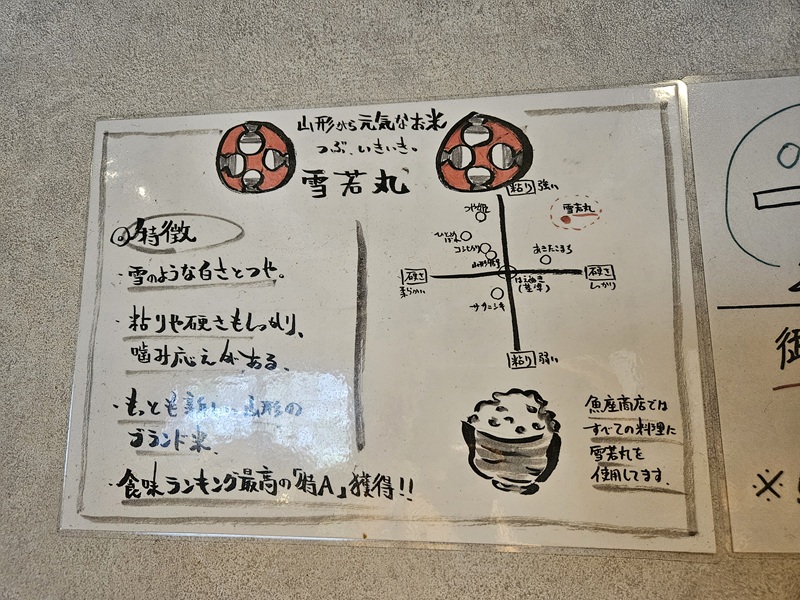 山形から元気なお米
つぶ、いきいき。
雪若丸
◎特徴
・雪のような白さとつや。
・粘りや硬さもしっかり、
噛み応えがある。
・もっとも新しい山形の
ブランド米。
・食味ランキング最高の「特A」獲得!!
粘り 強い
つや姫
雪若丸
ひとめぼれ
コシヒカリ
あきたこまち
硬さ
柔らかい
はえぬき
(基準)
硬さ
しっかり
ササニシキ
粘り 弱い
魚座商店では
すべての料理に
雪若丸を
使用してます。
御
※